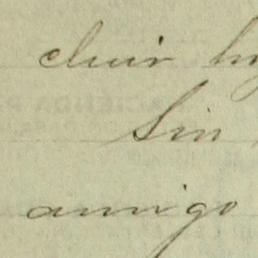 cluir
Sin
amigo